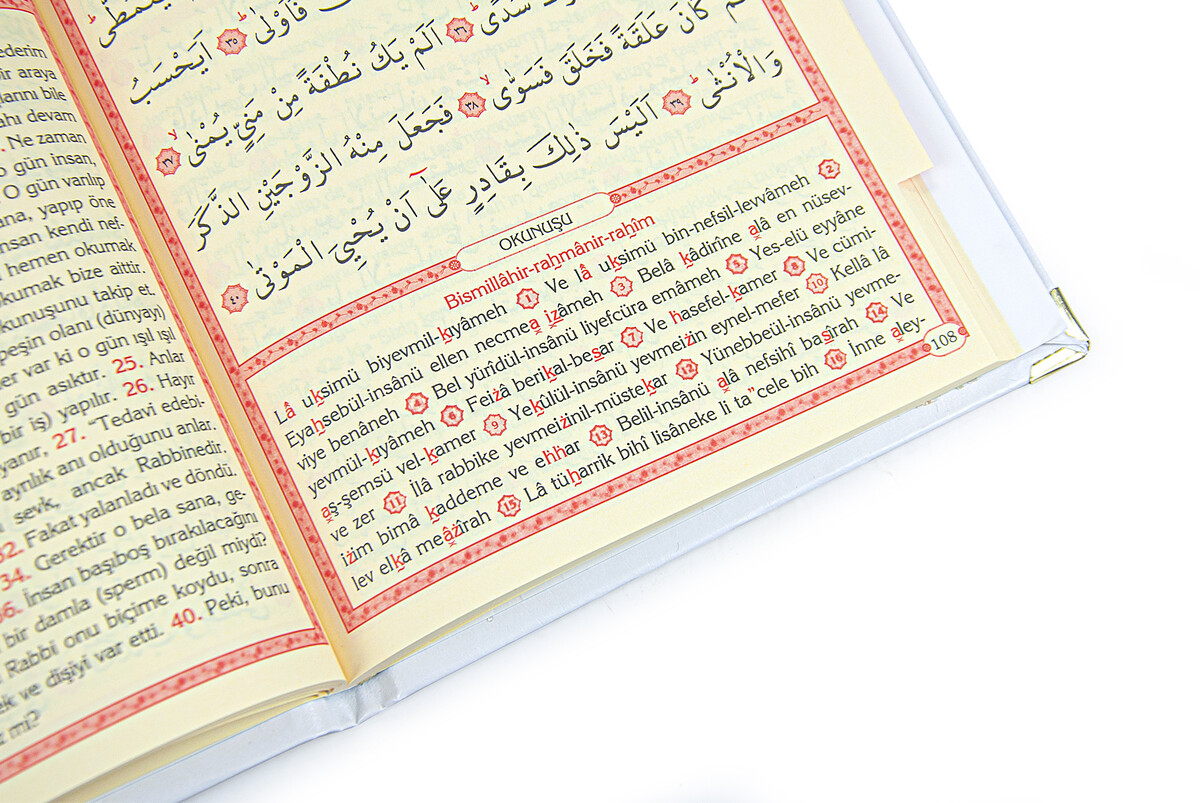 ederim
bir araya
larını bile
ahı devam
. Ne zaman
o gün insan,
O gün varılıp
ana, yapıp öne
insan kendi nef-
hemen okumak
kumak bize aittir.
kunuşunu takip et.
peşin olanı (dünyayı)
ler var ki o gün ışıl ışıl
gün asıktır. 25. Anlar
bir iş) yapılır. 26. Hayır
yanır, 27. “Tedavi edebi-
ayrılık anı olduğunu anlar.
sevk, ancak Rabbinedir.
32. Fakat yalanladı ve döndü.
34. Gerektir o bela sana, ge-
36. İnsan başıboş bırakılacağını
bir damla (sperm) değil miydi?
Rabbi onu biçime koydu, sonra
ek ve dişiyi var etti. 40. Peki, bunu
z mi?
يَتَمَطّٰى
فَاَوْلٰى ٣٥ اَيَحْسَبُ
سُدًى ٣٦ اَلَمْ يَكُ نُطْفَةً مِنْ مَنِيٍّ يُمْنٰى ٣٧
كَانَ عَلَقَةً فَخَلَقَ فَسَوّٰى ٣٨ فَجَعَلَ مِنْهُ الزَّوْجَيْنِ الذَّكَرَ
وَالْاُنْثٰى ٣٩ اَلَيْسَ ذٰلِكَ بِقَادِرٍ عَلٰٓى اَنْ يُحْيِيَ الْمَوْتٰى ٤٠
OKUNUŞU
Bismillâhir-rahmânir-rahîm
Lâ uksimü biyevmil-kıyâmeh 1 Ve lâ uksimü bin-nefsil-levvâmeh 2
Eyahsebül-insânü ellen necmea izâmeh 3 Belâ kâdirîne alâ en nüsev-
viye benâneh 4 Bel yürîdül-insânü liyefcüra emâmeh 5 Yes-elü eyyâne
yevmül-kıyâmeh 6 Feiżâ berikal-besar 7 Ve hasefel-kamer 8 Ve cümi-
aş-şemsü vel-kamer 9 Yekûlül-insânü yevmeiżin eynel-mefer 10 Kellâ lâ
ve zer 11 İlâ rabbike yevmeiżinil-müstekar 12 Yünebbeül-insânü yevme-
iżim bimâ kaddeme ve ehhar 13 Belil-insânü alâ nefsihî basîrah 14 Ve
lev elkâ meâżîrah 15 Lâ tüharrik bihî lisâneke li ta”cele bih 16 İnne aley-
108